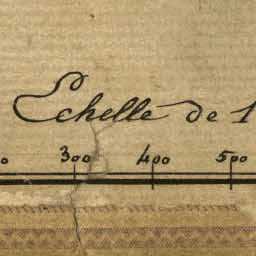 Echelle de 1
0 300 400 500